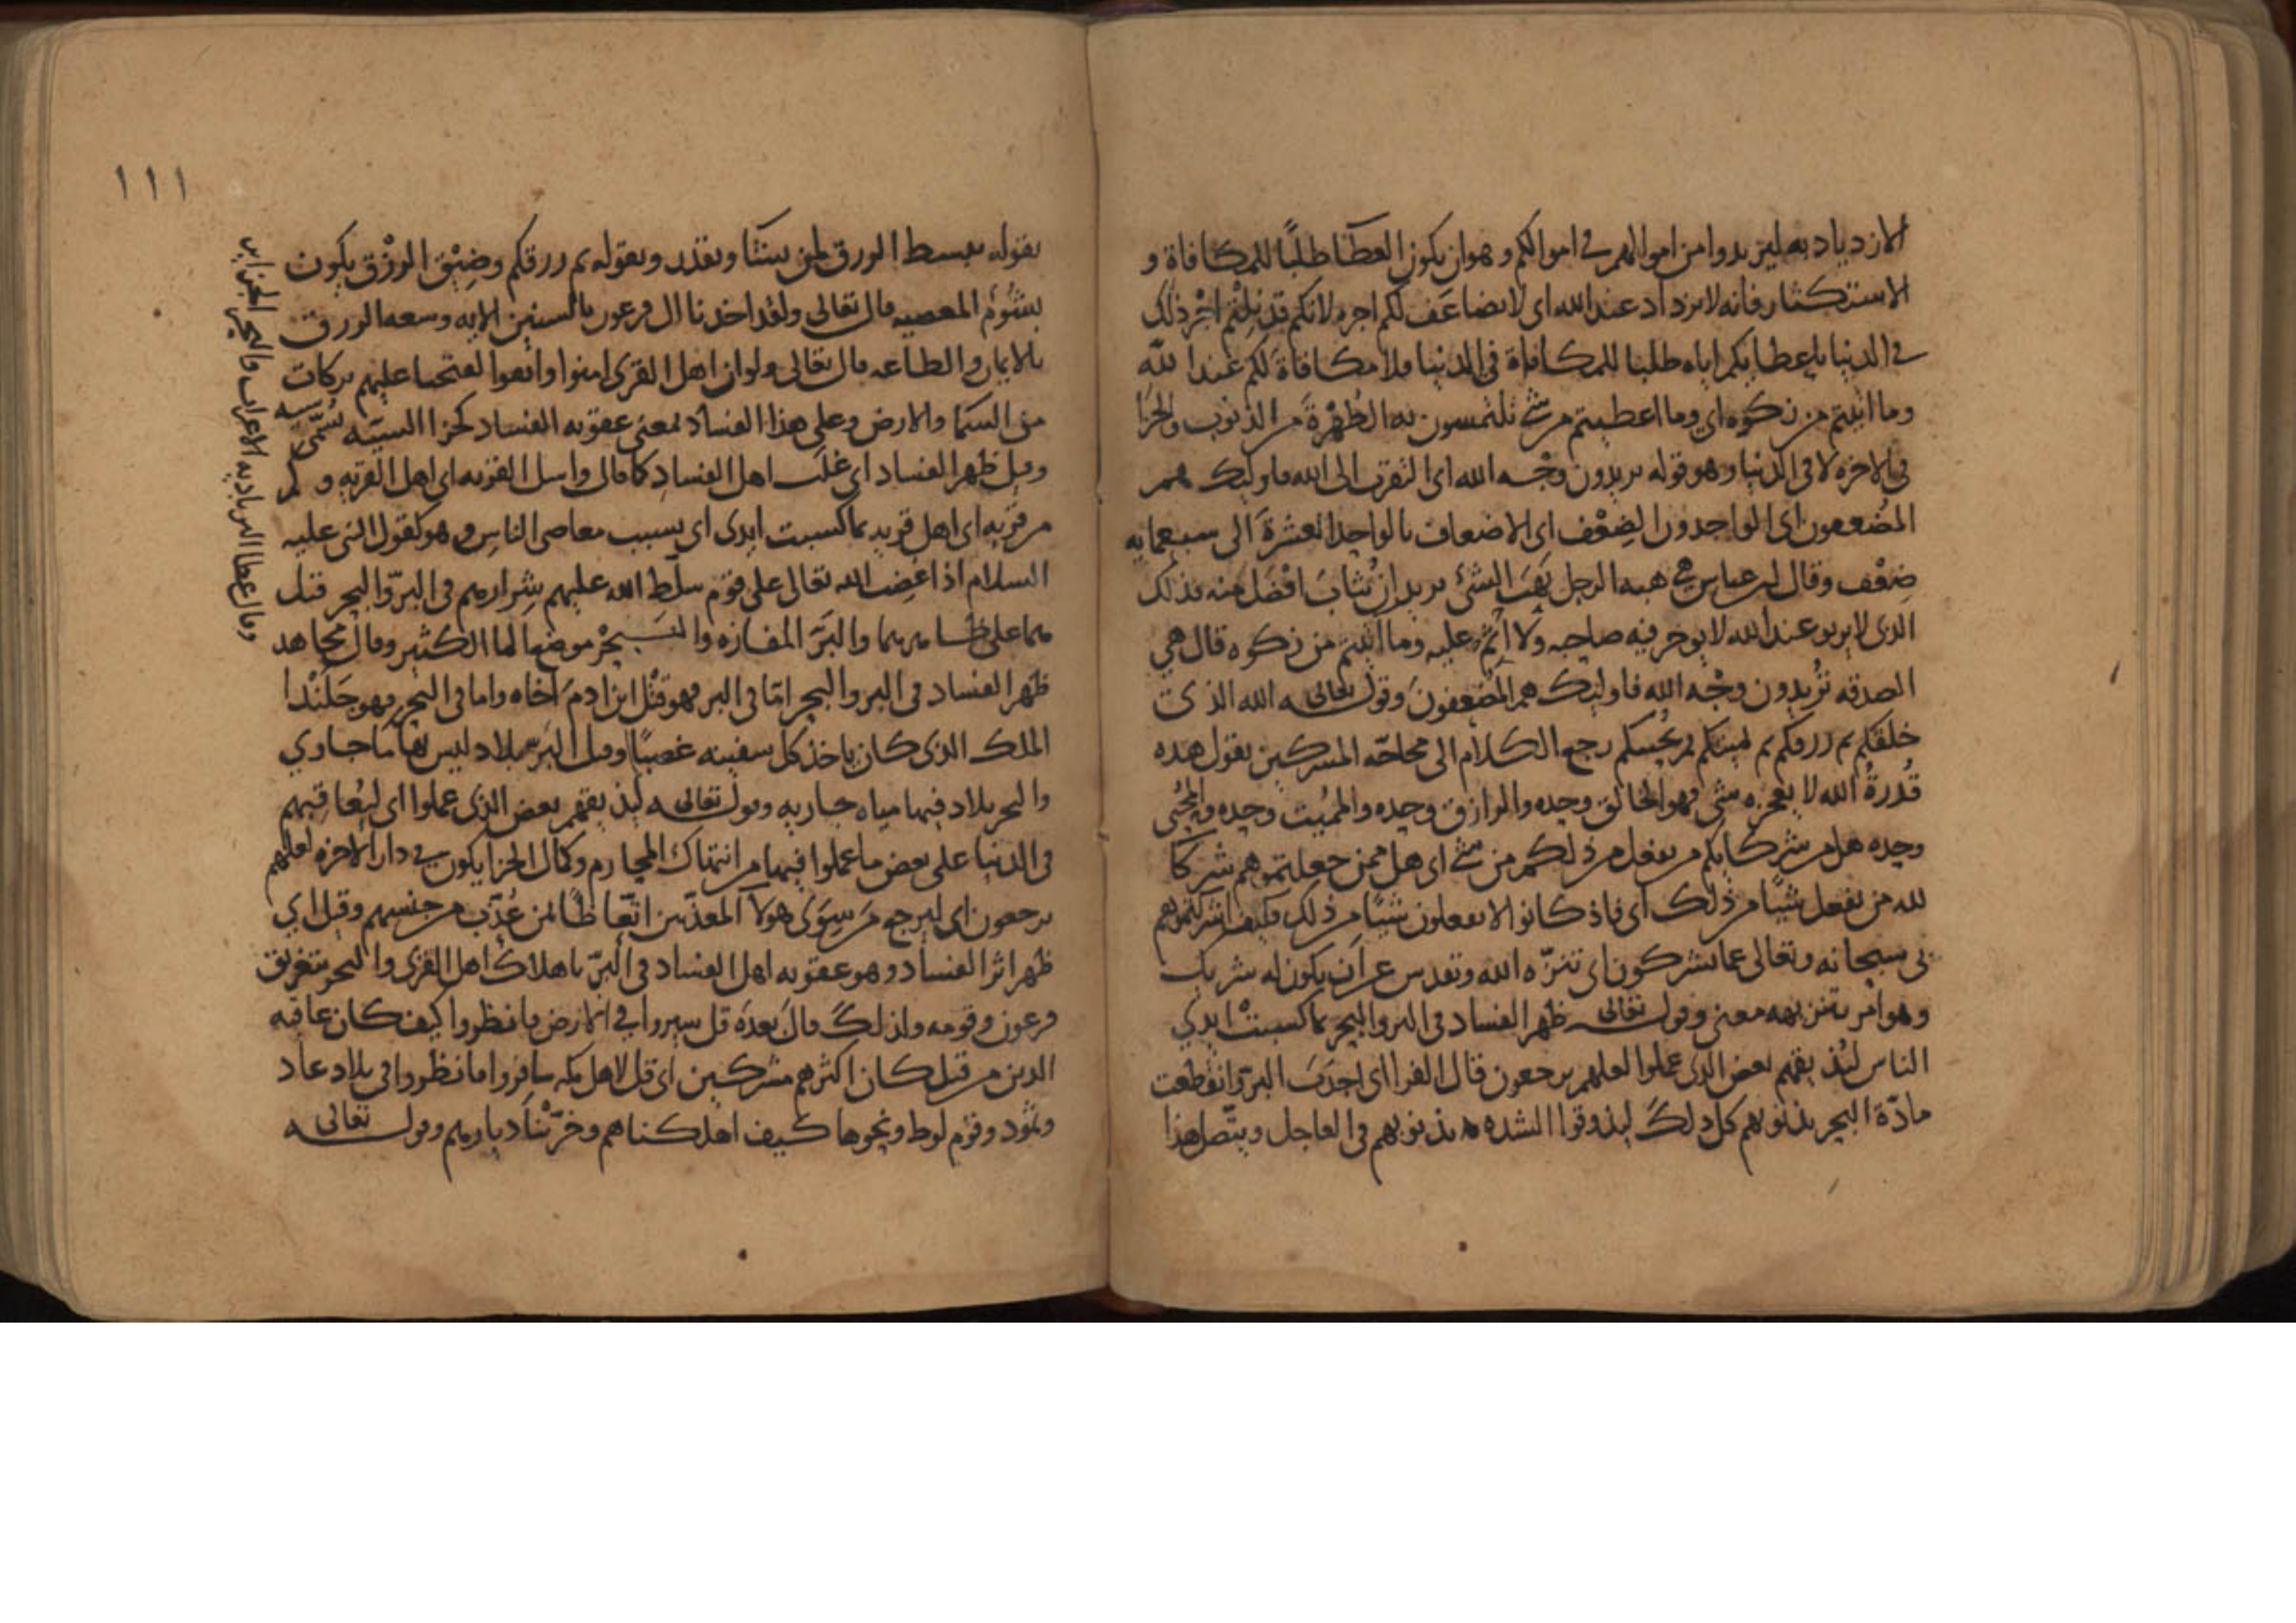 الازدياد به ليزيدوا من اموالهم في اموالكم وهو ان يكون العطا طلبًا للمكافاة و
الاستكثار فانه لا يزداد عند الله اى لا يضاعَف لكم اجره لانكم قد نِلْتم اجْر ذلك
في الدنيا باعطايكم اياه طلبا للمكافاة في الدنيا فلا مكافاة لكم عند الله
وما اتيتم من زكوه اي وما اعطيتم من شي تلتمسون به الطُهْرةَ من الذنوب والجزا
في الاخره لا في الدنيا وهو قوله تريدون وجْه الله اى التقرب الى الله فاوليك هم
المضعفون اى الواجدون الضِعْف اى الاضعاف بالواحد العشرةَ الى سبعمايه
ضِعْف وقال ابن عباس هي هبه الرجل يَهَب الشئ يريد ان يُثابَ افْضَل منه فذلك
الذى لا يربو عند الله لا يوجر فيه صاحبه ولا اثم عليه وما اتيتم من زكوه قال هي
الصدقه تُريدون وجْه الله فاوليك هم المُضعِفونَ وقوله تعالى الله الذى
خلقكم ثم رزقكم ثم يميتكم ثم يُحييكم رجع الكلام الى محاجّه المشركين يقول هذه
قُدرةُ الله لا يعجزه شي فهو الخالق وحده والرازق وحده والمُميت وحده والمُحيي
وحده هل من شركايكم من يفعل من ذلكم من شي اى هل ممن جعلتموهم شركا
لله من يفعل شيًا من ذلك اى فاذ كانوا لا يفعلون شيًا من ذلك فكيف اشركتموهم
بى سبحانه وتعالى عما يشركون اى تنزّه الله وتقدس عن اَن يكون له شريك
وهو امر بتنزيهه معنى وقوله تعالى ظهر الفساد في البر والبحر بما كسبتْ ايدي
الناس ليُذيقهم بعض الذى عملوا لعلهم يرجعون قال الفرا اى اجدَبَ البرّ وانقطعت
مادّة البحر بذنوبهم كل ذلك ليذوقوا الشده بذنوبهم في العاجل ويتّصل هذا
١١١
بقوله يبسط الرزق لمن يشآ ويقدر وبقوله ثم رزقكم وضِيْق الرزْق يكون
بشُؤم المعصيه قال تعالى ولقد اخذنا ال فرعون بالسنين الايه وسعه الرزق
بالايمان والطاعه قال تعالى ولو ان اهل القرى امنوا واتقوا لفتحنا عليهم بركات
من السما والارض وعلى هذا الفساد بمعنى عقوبه الفساد كجزا السييه سُمّى سييه
وقيل ظهر الفساد اى غلَب اهل الفسادِ كما قال واسل القريه اى اهل القريه وكم
من قريه اى اهل قريه بما كسبت ايدى اى بسبب معاصى الناسِ وهو كقول النبي عليه
السلام اذا غضِب الله تعالى على قوم سلّط الله عليهم شِرارهم في البرّ والبحر قيل
هما على ظاهرهما والبَرّ المفازه والبَحْر موضع الما الكثير وقال مجاهد
ظهر الفساد في البر والبحر امّا في البر فهو قتْل ابن ادمَ اخاه واما في البحر فهو جَلَنْدا
الملك الذى كان ياخذ كل سفينه غصبًا وقيل البَر بلاد ليس لها ما جاري
والبحر بلاد فيها مياه جاريه وقوله تعالى ليذيقهم بعض الذى عملوا اى ليُعاقبهم
في الدنيا على بعض ما عملوا فيها من انتهاك المحارم وكمال الجزا يكون في دار الاخره لعلهم
يرجعون اى ليرجع مَن سِوَى هولآ المعذّبين اتّعاظًا بمن عُذّب من جنسهم وقيل اي
ظهر اثر الفساد وهو عقوبه اهل الفساد في البرّ باهلاك اهل القرى والبحر بتغريق
فرعون وقومه ولذلك قال بعدَه قل سيروا في الارض فانظروا كيف كان عاقبه
الذين من قبل كان اكثرهم مشركين اى قل لاهل مكه سافروا فانظروا في بلاد عاد
وثمُود وقوم لوط ونحوها كيف اهلكناهم وخرّبْنا ديارهم وقوله تعالى
وقال عطا البر باديه الاعراب والبحر الجزاير